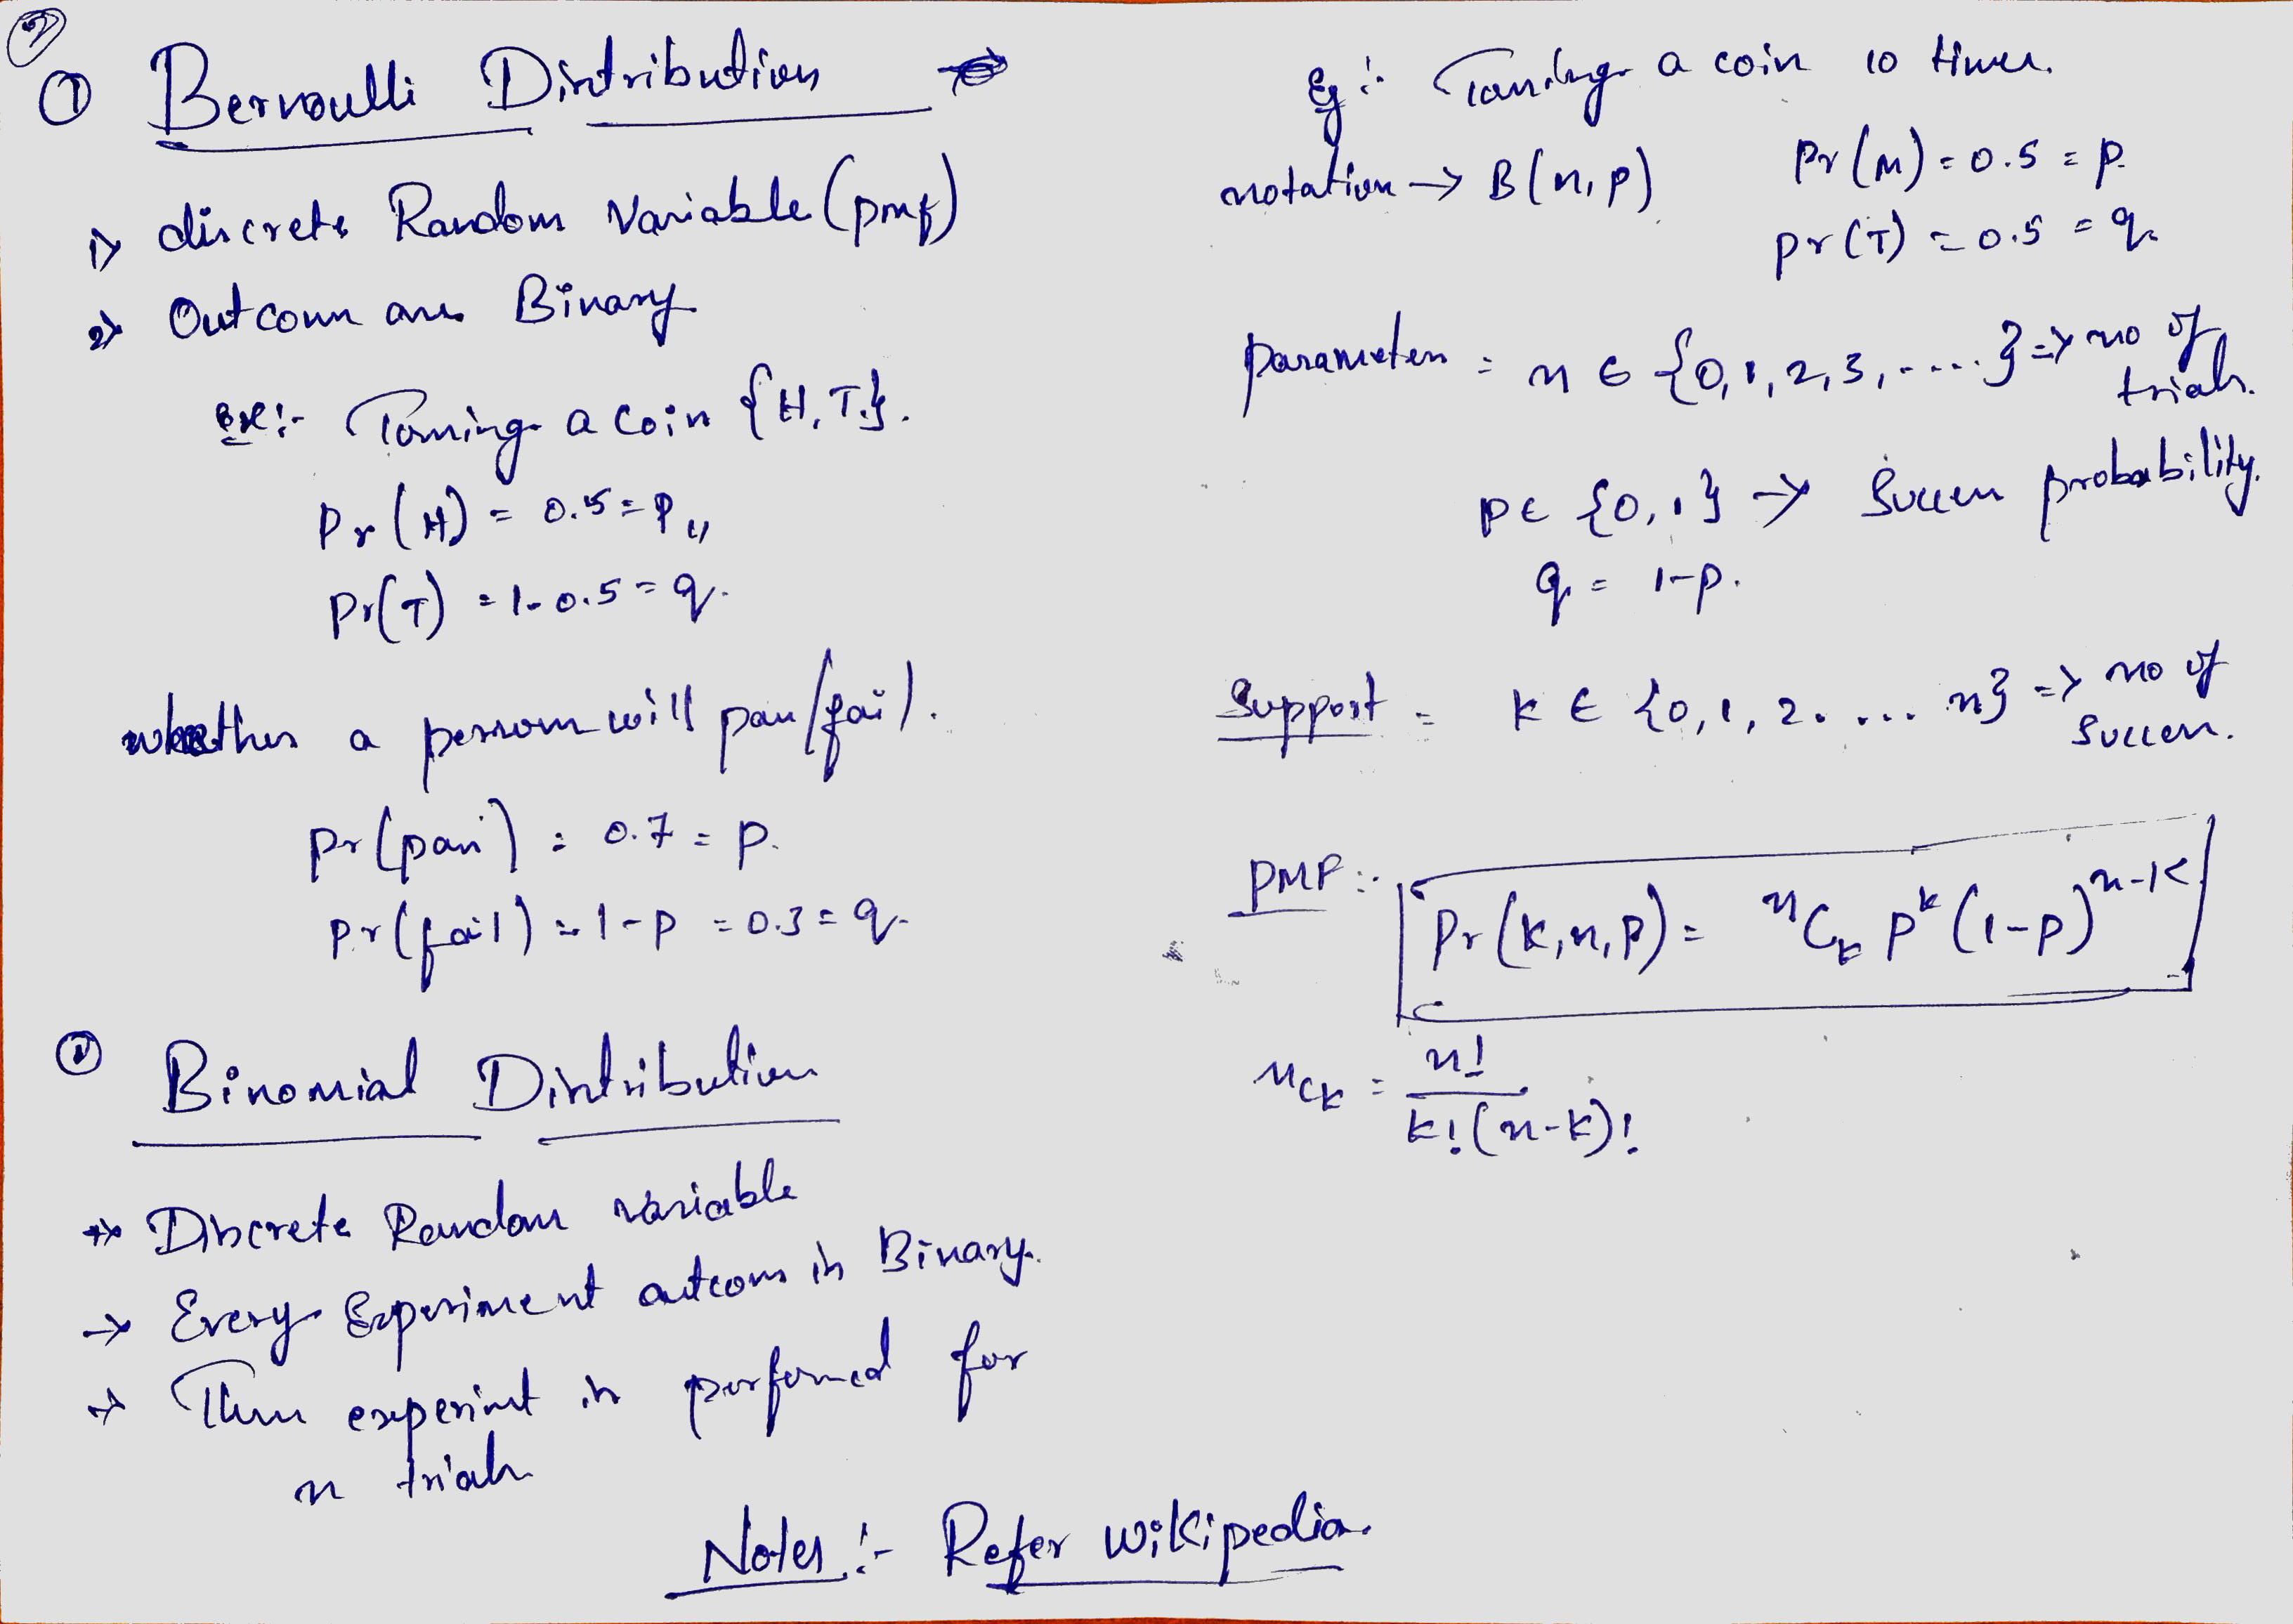 ①
Bernoulli Distribution
1) discrete Random Variable (pmf)
2) Outcomes are Binary
Ex:- Tossing a coin {H, T}.
Pr(H) = 0.5 = P
Pr(T) = 1-0.5 = q.
whether a person will pass/fail.
Pr(pass) = 0.7 = p.
Pr(fail) = 1-p = 0.3 = q.
② Binomial Distribution
→ Discrete Random variable
→ Every Experiment outcome is Binary.
→ experiment is performed for
n trials
Eg:- Tossing a coin 10 times.
notation → B(n, p)
Pr(H) = 0.5 = p.
Pr(T) = 0.5 = q.
parameters = n ∈ {0, 1, 2, 3, .....} => no of
trials.
p ∈ {0, 1} → Success probability.
q = 1-p.
Support = k ∈ {0, 1, 2. .... n} => no of
Success.
PMF:-
Pr(k, n, p) = ⁿCₖ pᵏ (1-p)ⁿ⁻ᵏ
nCk = n! / k!(n-k)!
Notes:- Refer Wikipedia.